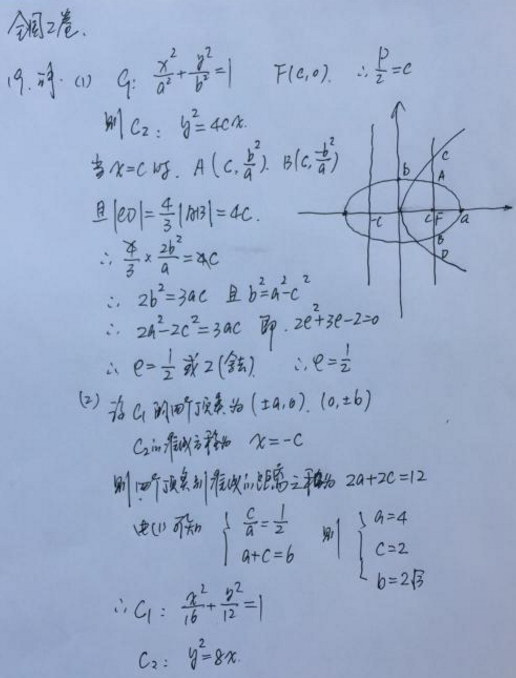 全国2卷.
19. 解. (1) C₁: x²/a² + y²/b² = 1 F(c,0). ∴ p/2 = c
则 C₂: y² = 4cx.
当 x=c 时. A(c, b²/a). B(c, b²/a)
且 |CD| = 4/3 |AB| = 4c.
∴ 4/3 × 2b²/a = 4c
∴ 2b² = 3ac 且 b² = a² - c²
∴ 2a² - 2c² = 3ac 即. 2e² + 3e - 2 = 0
∴ e = 1/2 或 2 (舍去). ∴ e = 1/2
(2) 设 C₁ 的四个顶点为 (±a,0). (0,±b)
C₂的准线方程为 x = -c
则四个顶点到准线的距离之和为 2a+2c=12
由(1)可知 { c/a = 1/2 a+c=6 则 { a=4 c=2 b=2√3
∴ C₁: x²/16 + y²/12 = 1
C₂: y² = 8x.
b
C
A
-c
c
F
a
B
D